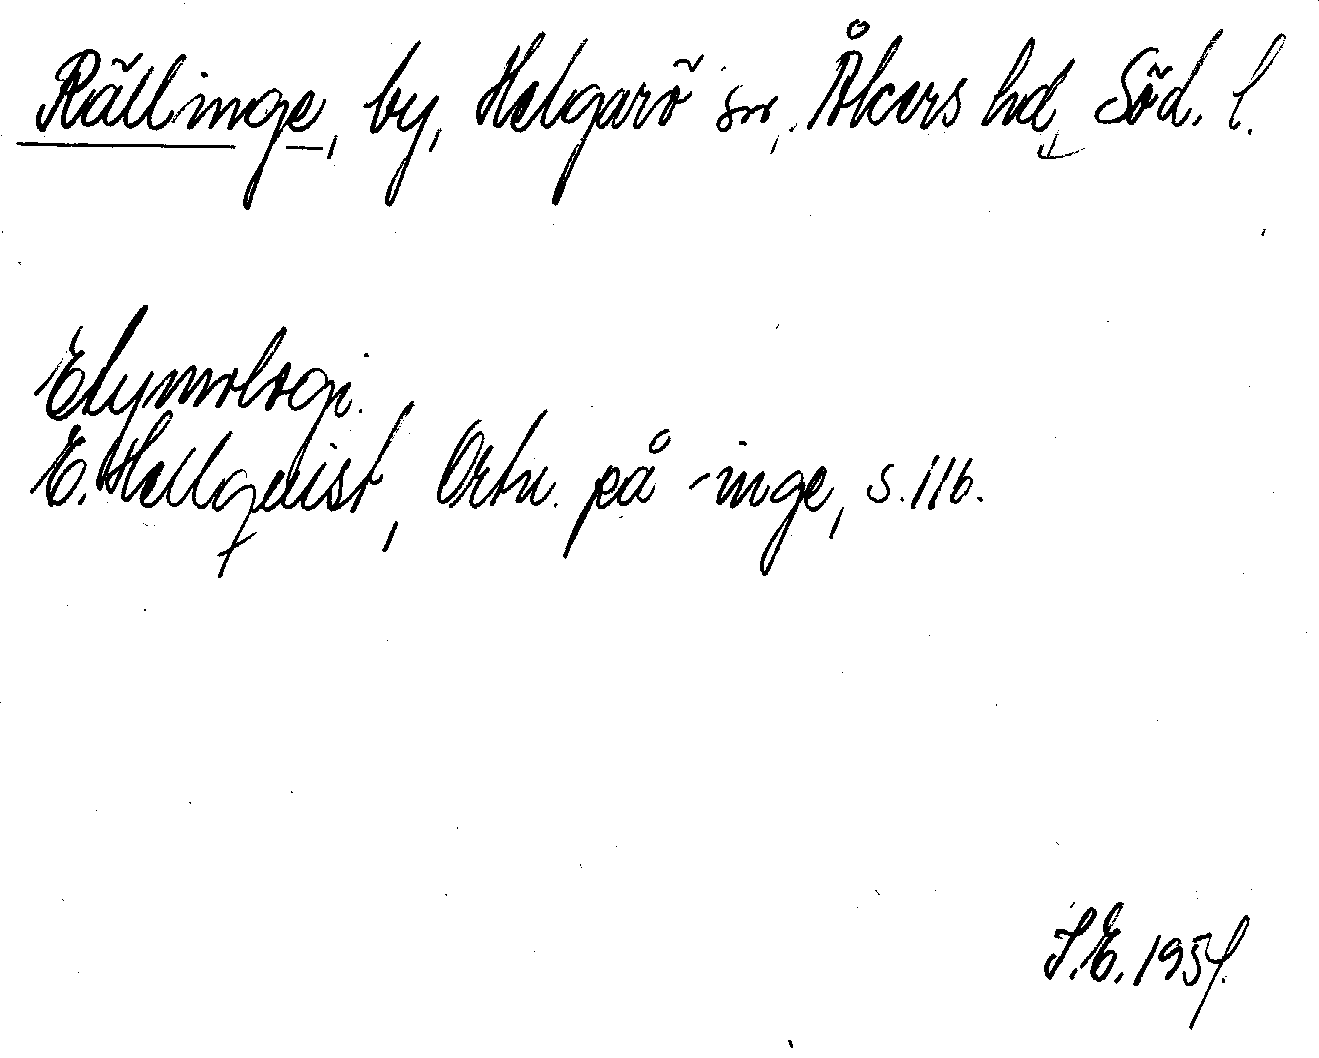 Rällinge, by, Helgarö sn, Åkers hd, Söd. l.
Etymologi.
E. Hellquist, Ortn. på -inge, s. 116.
S.E. 1957.